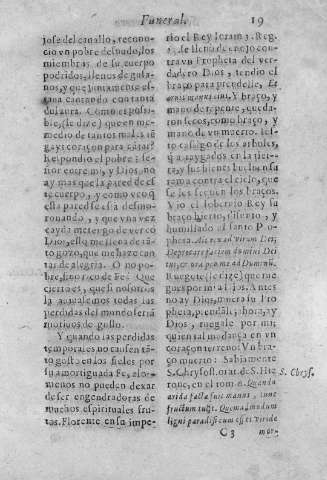 Funeral. 19
jose del cauallo, recono-
cio vn pobre desnudo, los
miembros de su cuerpo
podridos, llenos de gusa-
nos, y que juntamente es-
taua cantando con tanta
dulçura. Como es possi-
ble, (le dize) que en me-
medio de tantos males tē
gays coraçon para cātar?
Respondio el pobre: se-
ñor entre mi, y Dios, no
ay mas que la pared de es
te cuerpo, y como veo q̄
esta pared se està desmo-
ronando, y que vna vez
cayda me tengo de ver cō
Dios, esso me llena de tā-
to gozo, que me haze can
tar de alegria. O no po-
bre, sino rico de Fè! Que
cierto es, que
todas las
perdidas del mundo serià
motiuos de gusto.
Y quando las perdidas
temporales no causen tā-
to gusto en los fieles por
su amortiguada Fè, alo-
menos no pueden dexar
de ser engendradoras de
muchos espirituales fru-
tos. Florente en su impe-
rio el Rey Ieroam 3. Reg.
se lleno de enojo con-
tra vn Propheta del ver-
dadero Dios, tendio el
braço para prendelle, Et
aruit manus eius. Y braço, y
mano de repente, queda-
ron secos, como braço, y
mano de vn muerto. Ies-
to castigo de los arboles,
q̄ arraygados en la tier-
ra, y sus bienes bueluen su
rama contra el cielo, que
se les sequen los braços.
Vio el soberuio Rey su
braço yerto, difunto, y
humillado al santo Pro-
phesa. Ait rex ad virum Dei;
Deprecare faciem domini Dei
tui, & ora pro me ad Dominū.
Ruegote (le dize) que me
ruegues por mi a Dios. Antes
no ay Dios, muera su Pro-
pheta, prendàle; ahora, ay
Dios, ruegale por mi:
quien tal mudança en vn
coraçon terreno? Vn bra-
ço muerto: Sabiamente
S. Chrysost. orat. de S. Hie
rone, en el tom 6. Quanda
arida facta fuit manus, tunc
fructum tulit. Quemadmodum
ligni paradisi cum esset viride
S. Chrys.
C 3 mor-